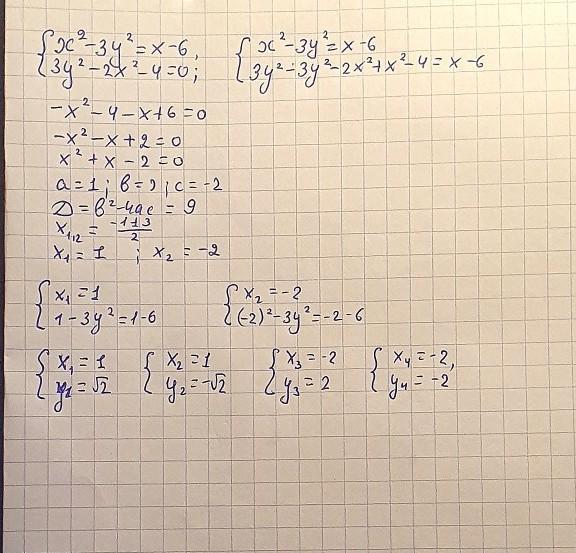 { x² - 3y² = x - 6,
3y² - 2x² - 4 = 0;
{ x² - 3y² = x - 6
3y² - 3y² - 2x² + x² - 4 = x - 6
-x² - 4 - x + 6 = 0
-x² - x + 2 = 0
x² + x - 2 = 0
a = 1; b = 1; c = -2
D = b² - 4ac = 9
x₁,₂ = (-1±3)/2
x₁ = 1 ; x₂ = -2
{ x₁ = 1
1 - 3y² = 1 - 6
{ x₂ = -2
(-2)² - 3y² = -2 - 6
{ x₁ = 1
y₁ = √2
{ x₂ = 1
y₂ = -√2
{ x₃ = -2
y₃ = 2
{ x₄ = -2,
y₄ = -2